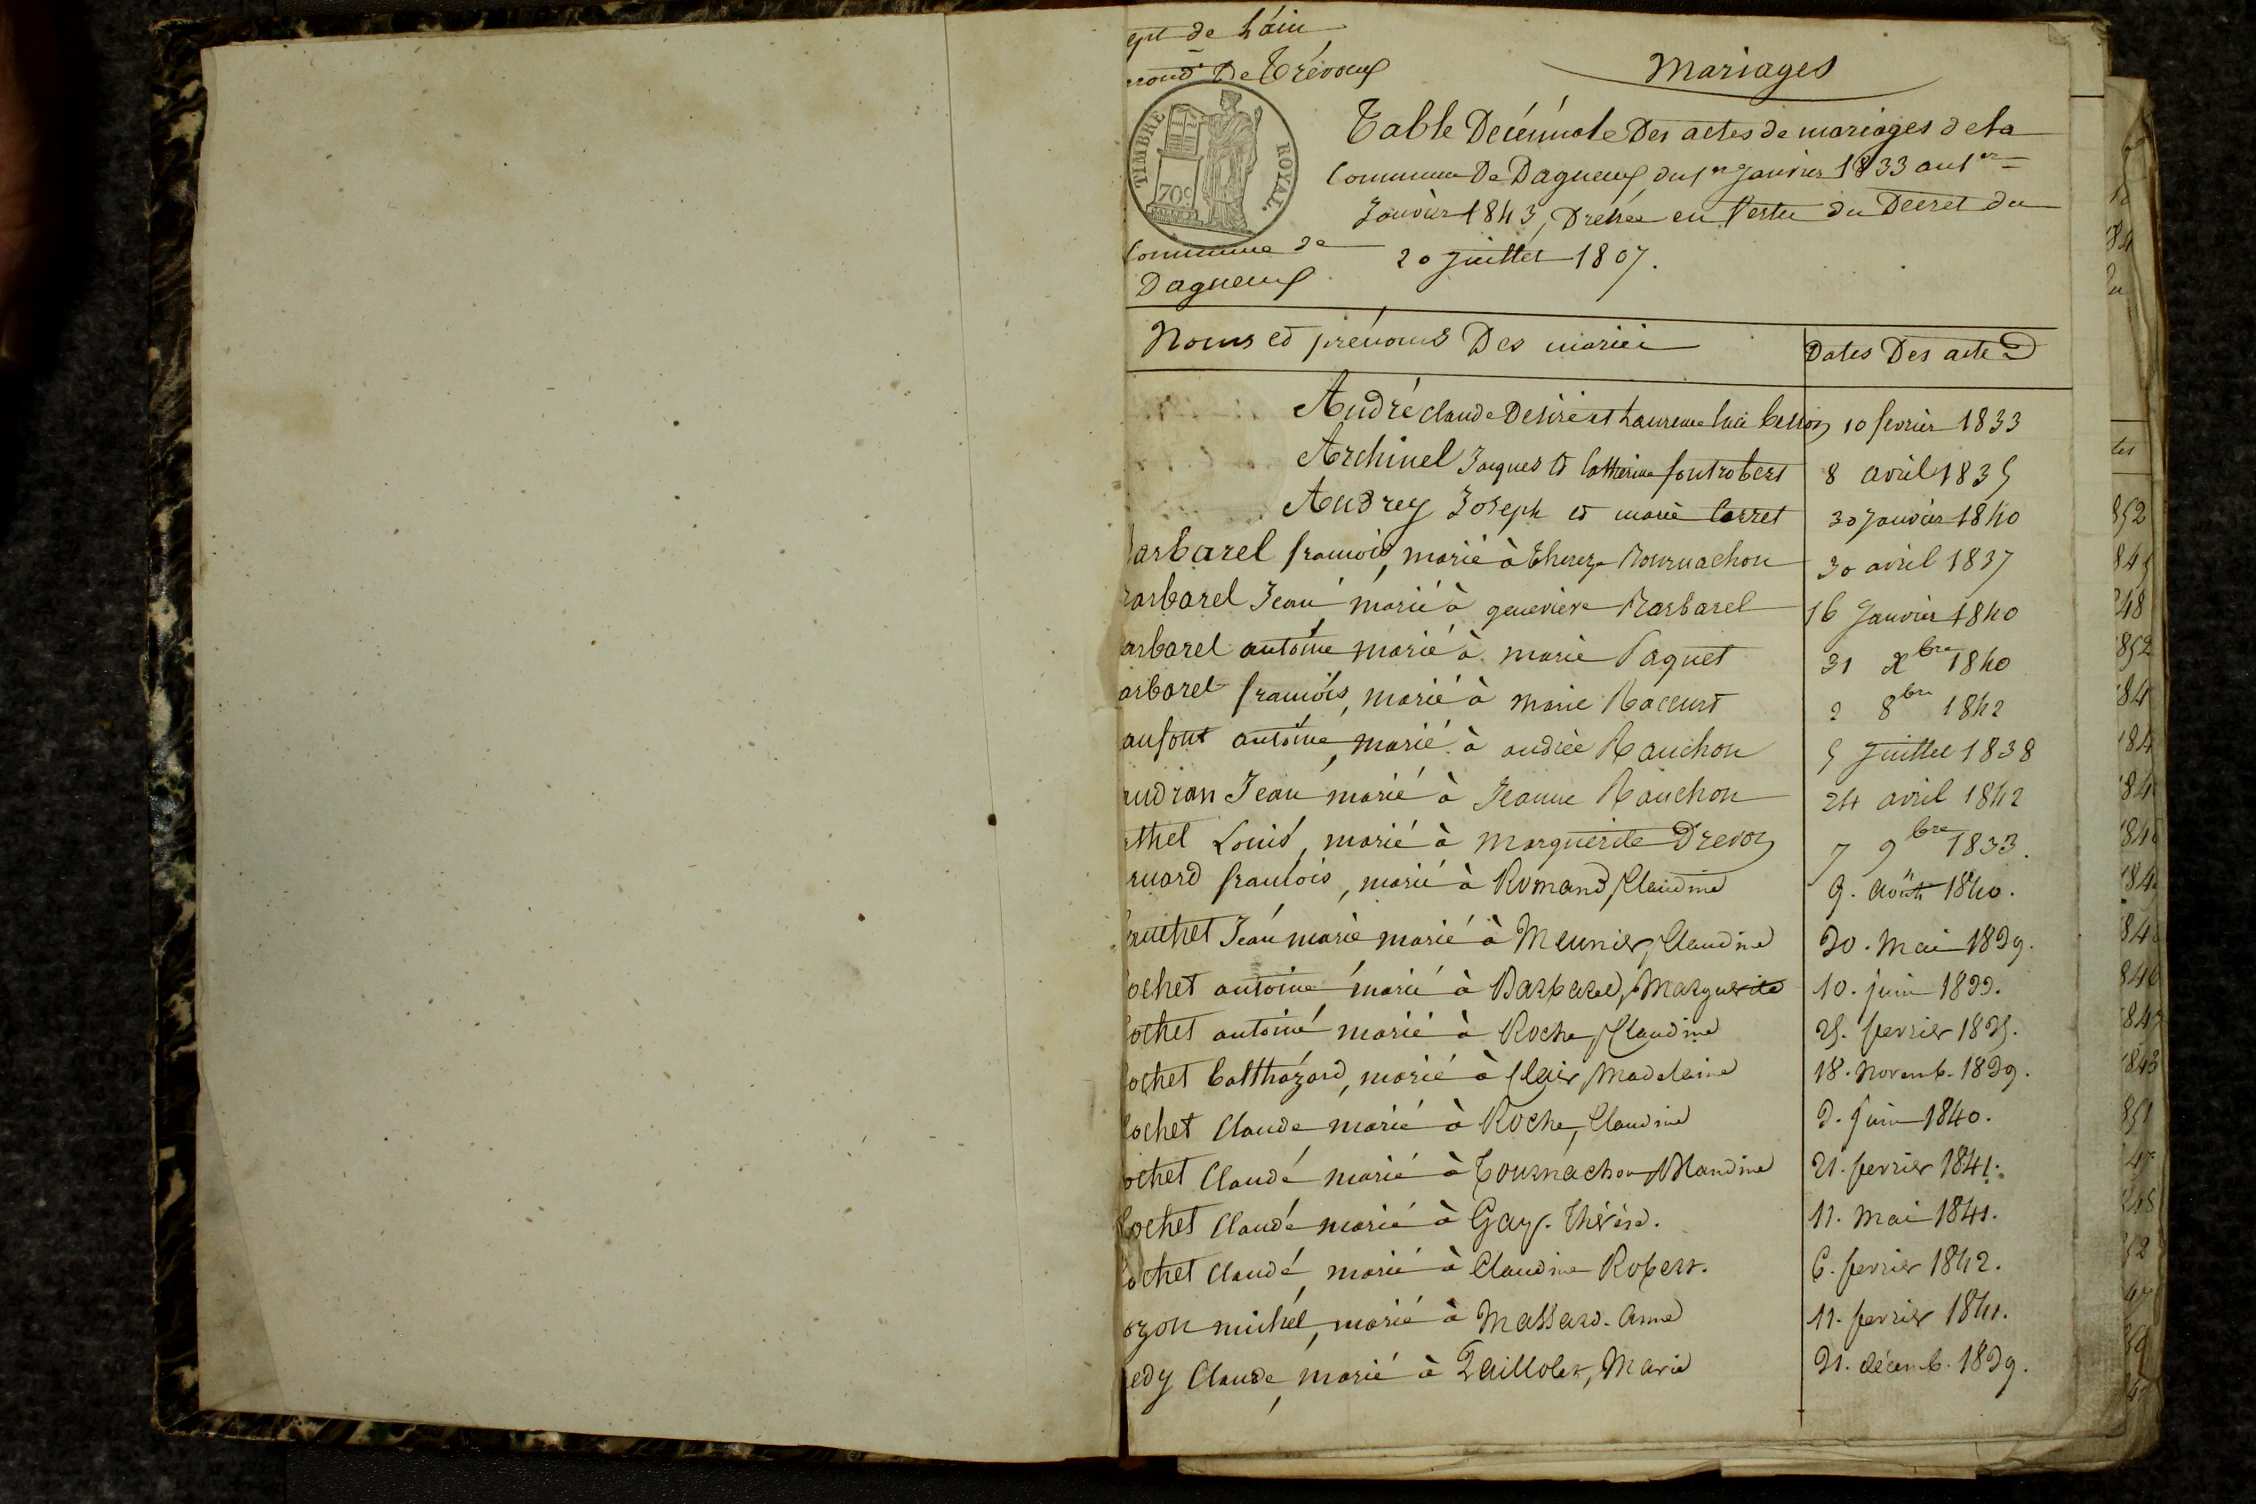 de l'ain
De Trévoux
Mariages
TIMBRE ROYAL.
70c
Table Décénnale Des actes de mariages de la
Commune De Dagneux, du 1er Janvier 1833 au 1er
Janvier 1843, Dressée en Vertu du Décret du
20 Juillet 1807.
Commune de
Dagneux
Noms et prénoms Des mariés
Dates Des actes
André claude Desiré et Laurence 10 fevrier 1833
Archinel Jacques et Catherine fontrobert 8 avril 1835
Audrey Joseph et marie Carret 30 Janvier 1840
arbarel francois, marié à Thereze Tournachon 30 avril 1837
arbarel Jean marié à genevieve Barbarel 16 Janvier 1840
arbarel antoine marié à marie Paquet 31 Xbre 1840
arbarel francois, marié à marie Baccuet 2 8bre 1842
aufont antoine, marié à andrée Bauchon 5 Juillet 1838
audran Jean marié à Jeanne Bauchon 24 avril 1842
thel Louis, marié à Marguerite Drevon 7 9bre 1833.
nard francois, marié à Romand, Claudine 9. août 1840.
chet Jean marie marié à Meunier, Claudine 20. Mai 1839.
ochet antoine marié à Barbarel, Marguerite 10. juin 1833.
ochet antoine marié à Roche, Claudine 25. fevrier 1835.
ochet Balthazard, marié à Clair, Madelaine 18. novemb. 1839.
ochet Claude marié à Roche, Claudine 2. Juin 1840.
ochet Claude marié à Tournachon, Claudine 21. fevrier 1841.
ochet Claude marié à Gay. Thérèse. 11. Mai 1841.
ochet Claude marié à Claudine Robert. 6. fevrier 1842.
ozon michel, marié à Massard. Anne 11. fevrier 1841.
edy Claude, marié à Taillolet, Marie 21. décemb. 1839.